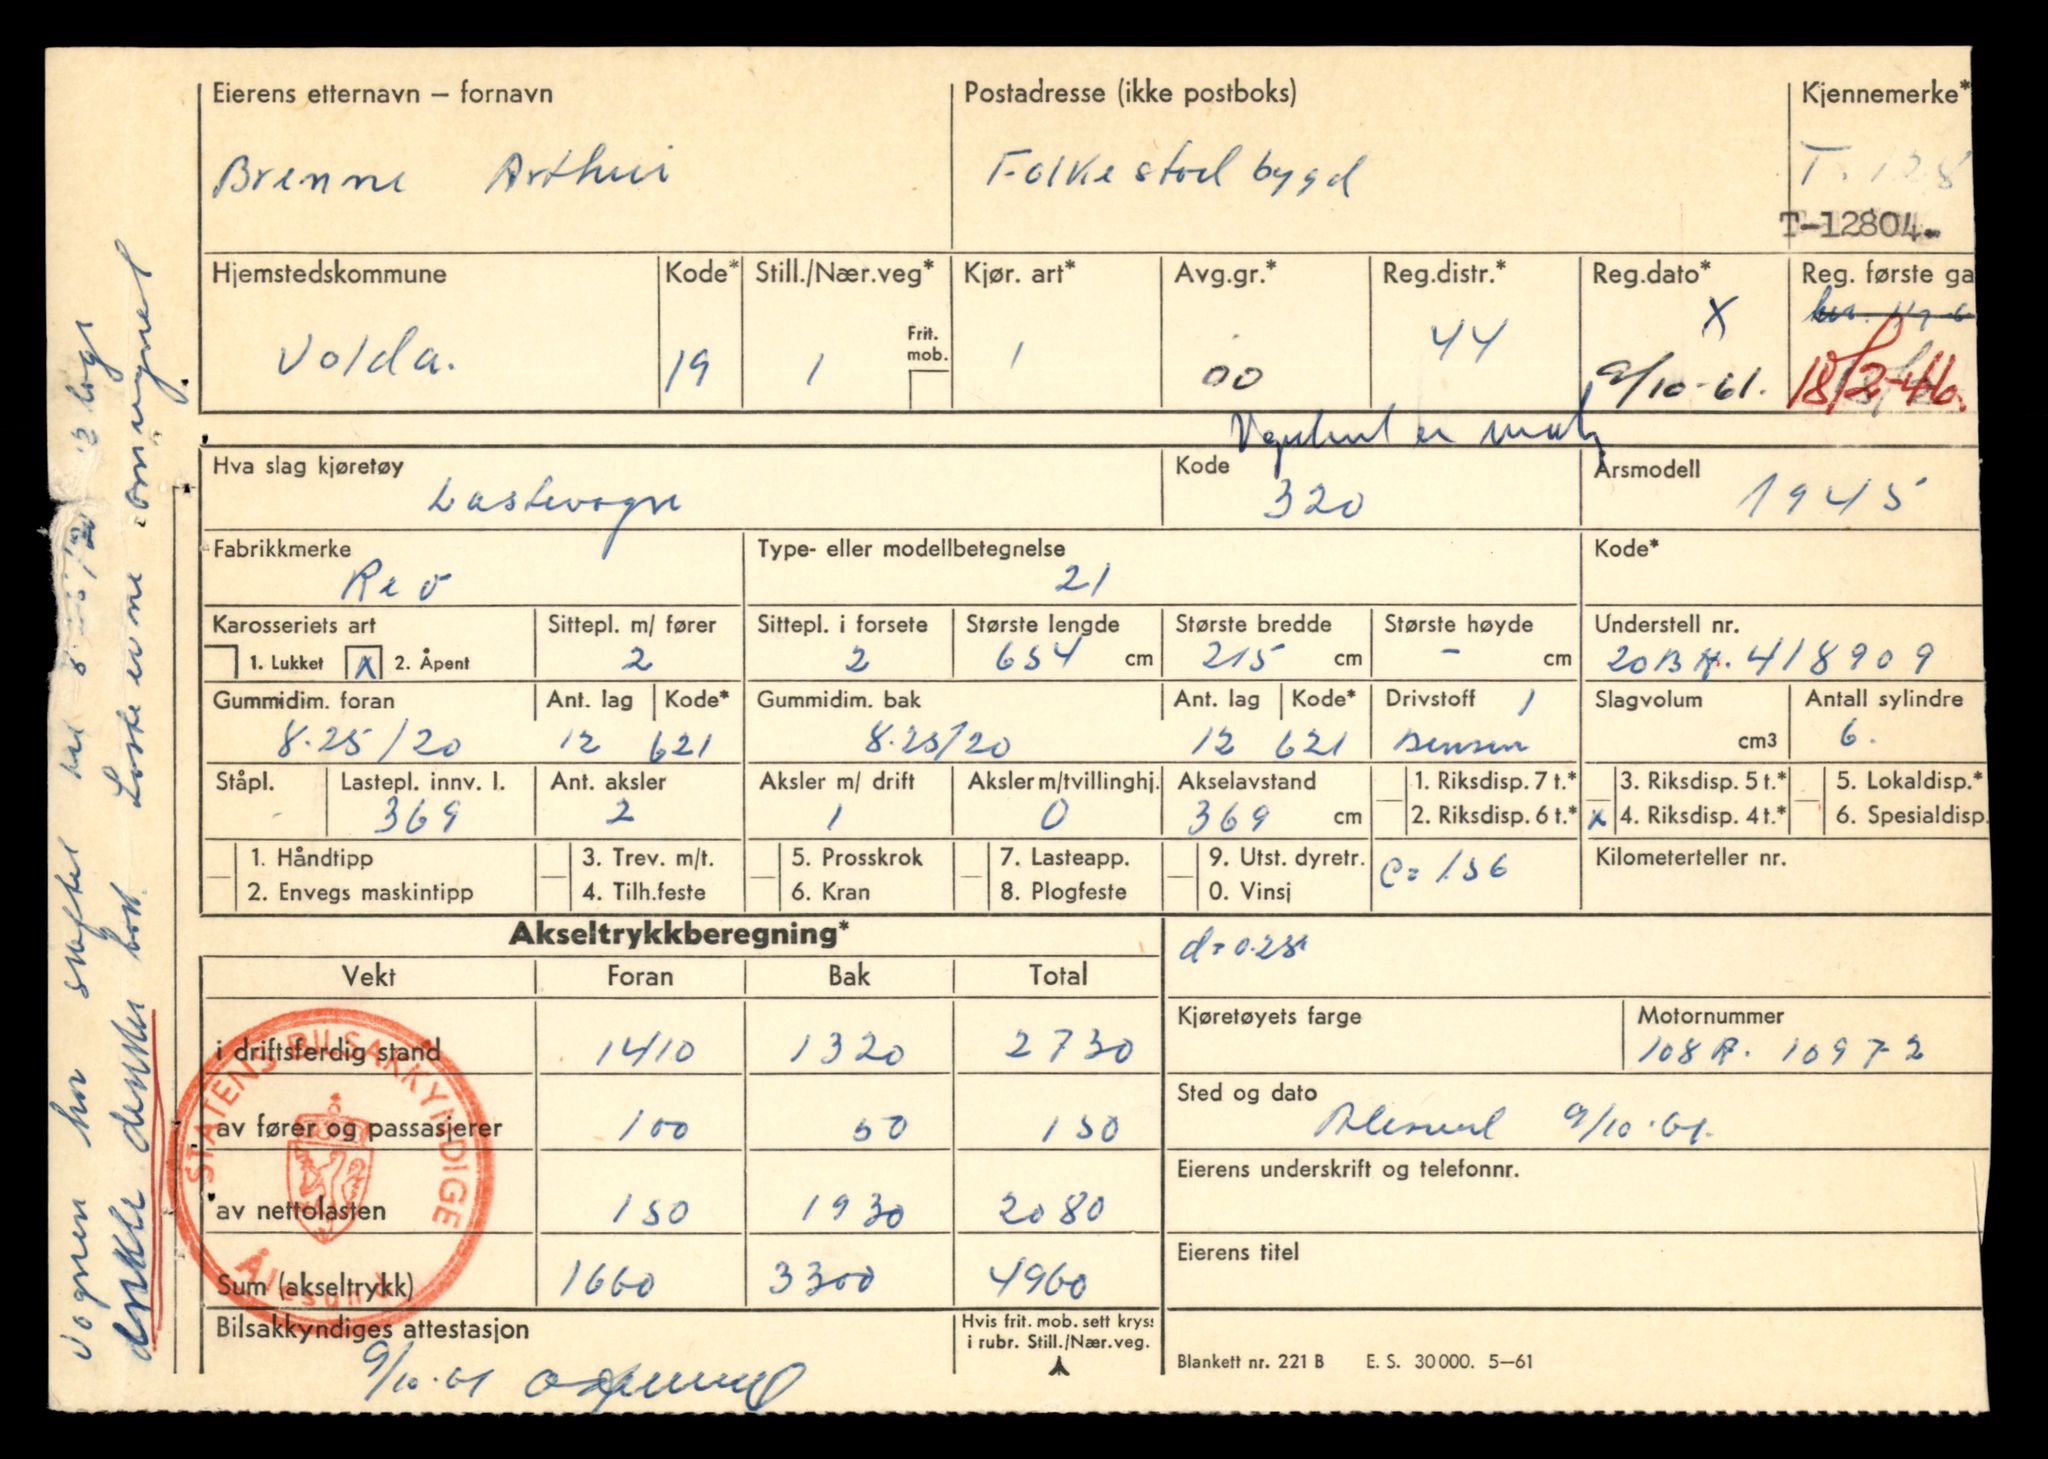 Eierens etternavn – fornavn Postadresse (ikke postboks) Kjennemerke*
Brenne Arthur Folkestad bygd T. 128
T-12804.
Hjemstedskommune Kode* Still./Nær.veg* Kjør. art* Avg.gr.* Reg.distr.* Reg.dato* Reg. første ga
Volda. 19 1 Frit. mob. 1 00 44 X 9/10-61. 18/2-46.
er
Hva slag kjøretøy Kode Årsmodell
Lastevogn 320 1945
Fabrikkmerke Type- eller modellbetegnelse Kode*
Reo 21
Karosseriets art Sittepl. m/ fører Sittepl. i forsete Største lengde Største bredde Største høyde Understell nr.
1. Lukket x 2. Åpent 2 2 654 cm 215 cm - cm 20BH. 418909
Gummidim. foran Ant. lag Kode* Gummidim. bak Ant. lag Kode* Drivstoff 1 Slagvolum Antall sylindre
8.25/20 12 621 8.25/20 12 621 Bensin cm3 6.
Ståpl. Lastepl. innv. l. Ant. aksler Aksler m/ drift Aksler m/tvillinghj. Akselavstand 1. Riksdisp. 7 t.* 3. Riksdisp. 5 t.* 5. Lokaldisp.*
- 369 2 1 0 369 cm 2. Riksdisp. 6 t.* x 4. Riksdisp. 4 t.* 6. Spesialdisp.
1. Håndtipp 3. Trev. m/t. 5. Prosskrok 7. Lasteapp. 9. Utst. dyretr. C= 156 Kilometerteller nr.
2. Envegs maskintipp 4. Tilh.feste 6. Kran 8. Plogfeste 0. Vinsj
Akseltrykkberegning* d=0.25
Vekt Foran Bak Total
Kjøretøyets farge Motornummer
i driftsferdig stand 1410 1320 2730 108A. 10972
Sted og dato
av fører og passasjerer 100 50 150 Ålesund 9/10-61.
Eierens underskrift og telefonnr.
av nettolasten 150 1930 2080
Eierens titel
Sum (akseltrykk) 1660 3300 4960
Bilsakkyndiges attestasjon Hvis frit. mob. sett kryss
i rubr. Still./Nær.veg.
9/10-61
Blankett nr. 221 B E. S. 30000. 5–61
STATENS BILSAKKYNDIGE
Ålesund
Vognen har skiftet hjul 8.25/20 12 lags
dekk bort. Lasteevne omregnet